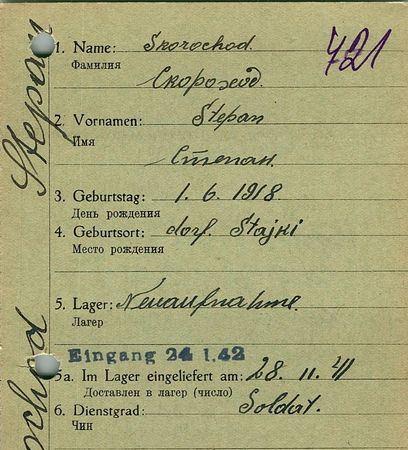 721
1. Name: Skorochod.
Фамилия
Скороход
2. Vornamen: Stepan
Имя
Степан.
3. Geburtstag: 1. 6. 1918
День рождения
4. Geburtsort: dorf. Stajki
Место рождения
5. Lager: Neuaufnahme.
Лагер
Eingang 24 1.42
5a. Im Lager eingeliefert am: 28. 11. 41
Доставлен в лагер (число)
6. Dienstgrad: Soldat.
Чин
Stepan